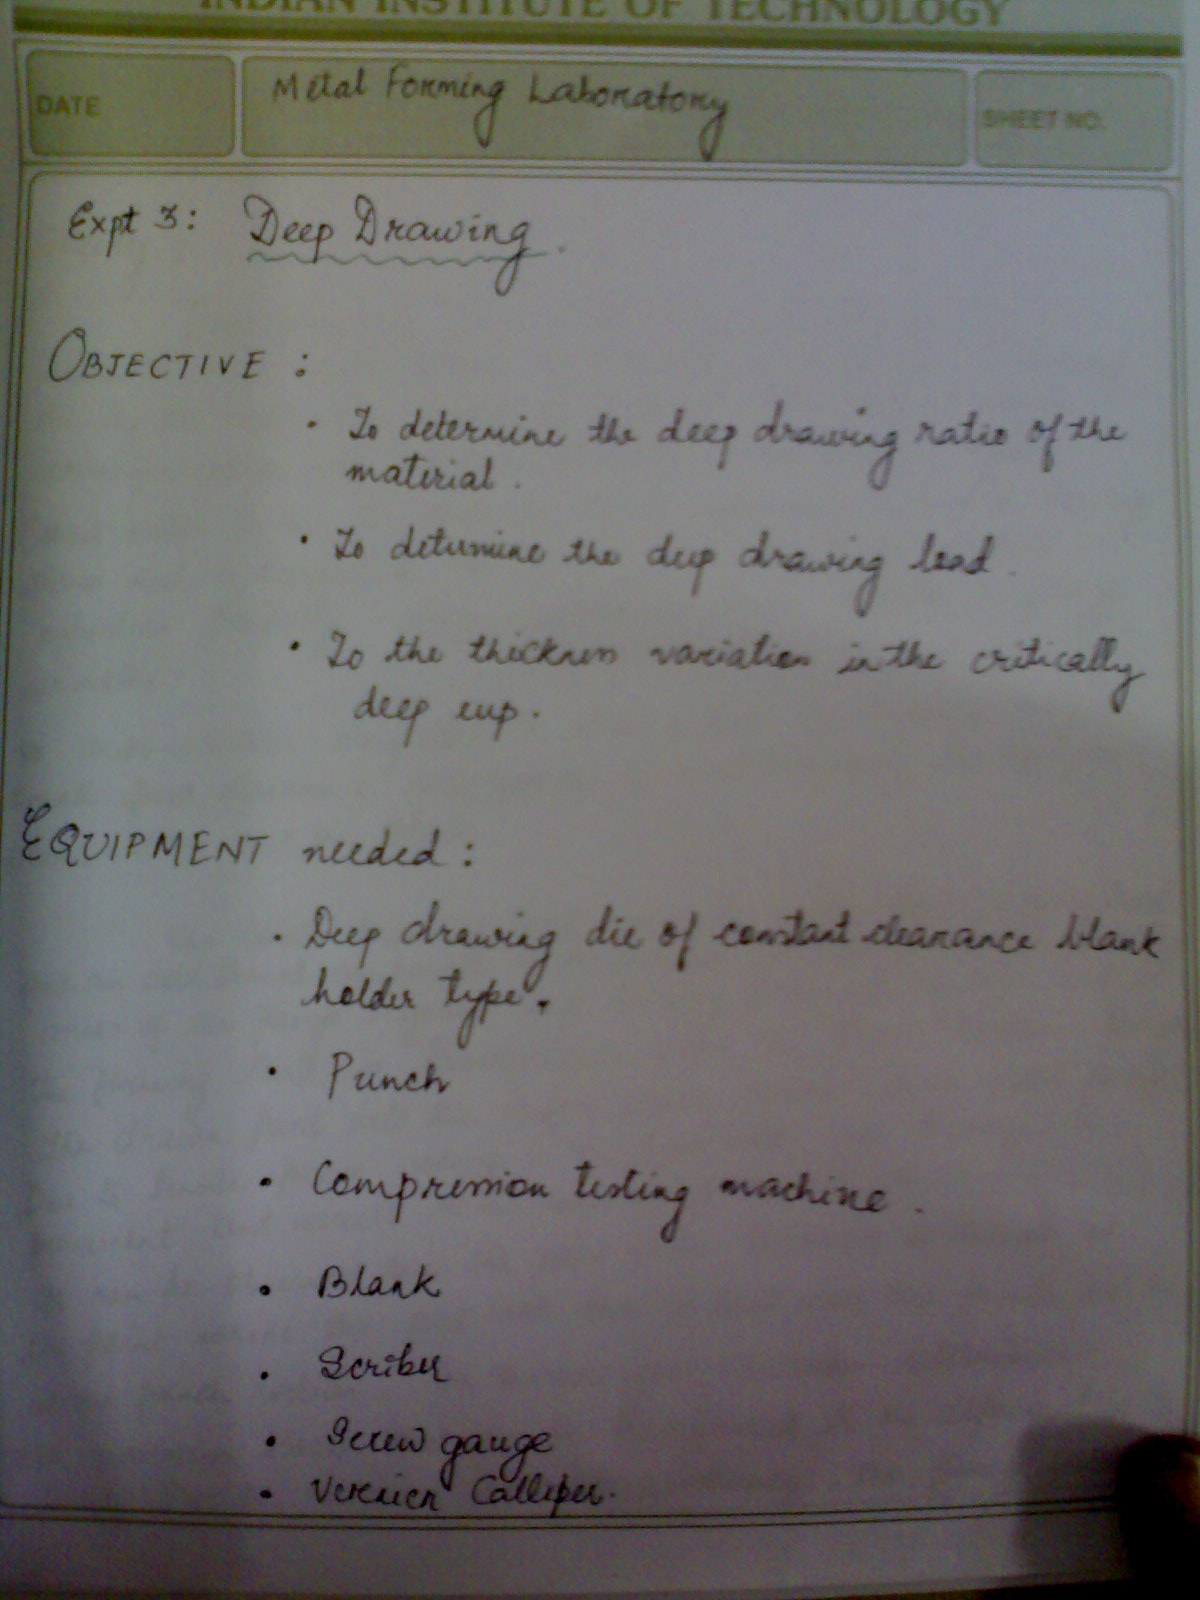 INDIAN INSTITUTE OF TECHNOLOGY
DATE
Metal Forming Laboratory
SHEET NO.
Expt 3: Deep Drawing.
OBJECTIVE :
• To determine the deep drawing ratio of the
material.
• To determine the deep drawing load.
• To the thickness variation in the critically
deep cup.
EQUIPMENT needed :
• Deep drawing die of constant clearance blank
holder type.
• Punch
• Compression testing machine.
• Blank
• Scriber
• Screw gauge
• Vernier Calliper.